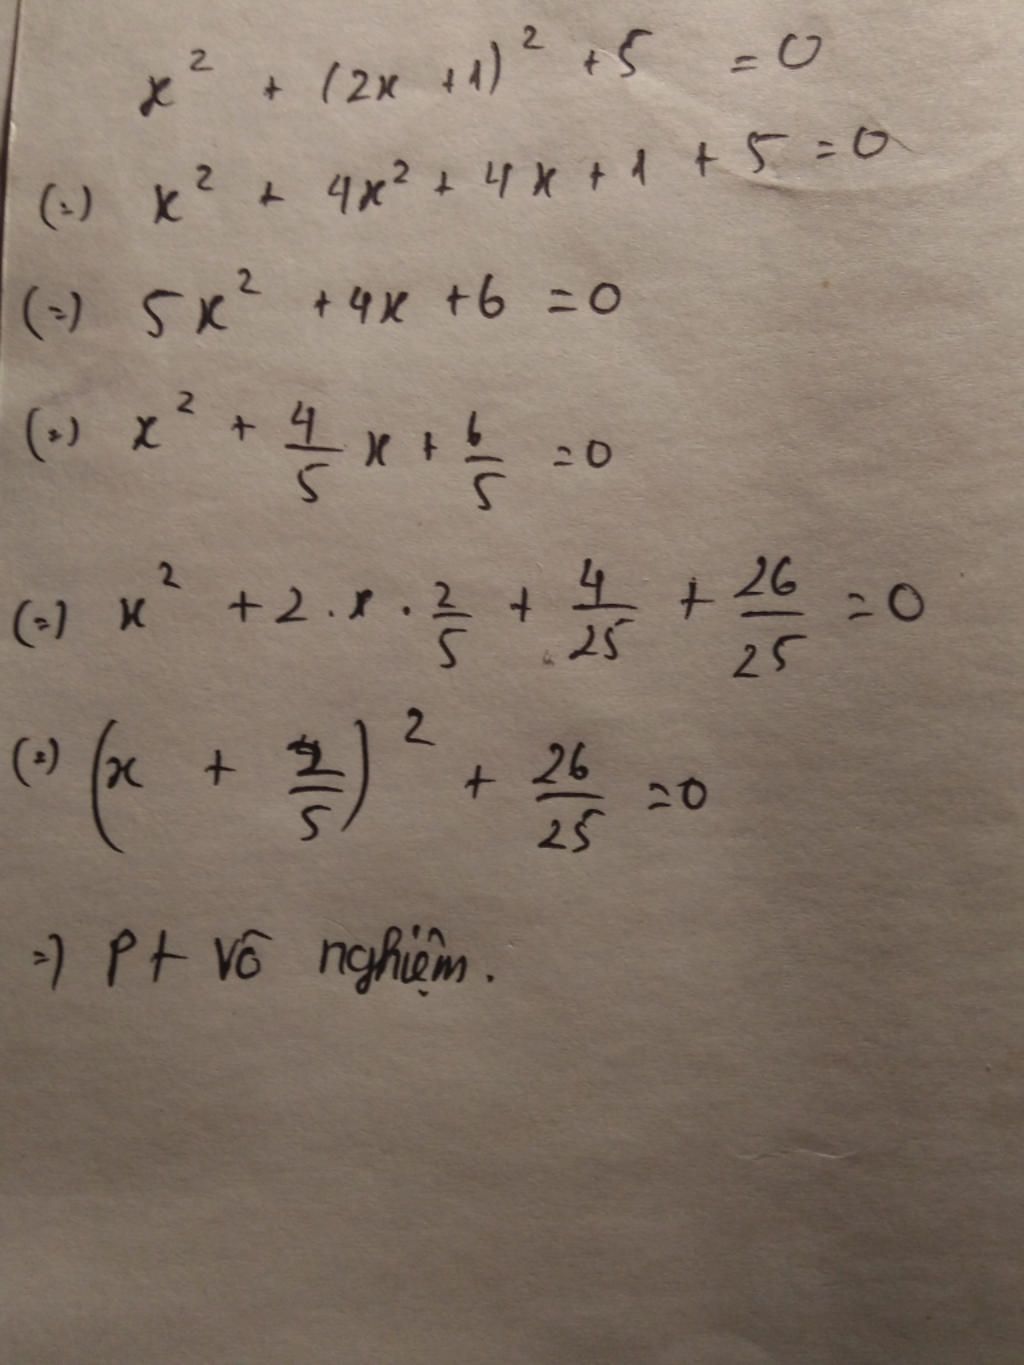 x² + (2x + 1)² + 5 = 0
(=) x² + 4x² + 4x + 1 + 5 = 0
(=) 5x² + 4x + 6 = 0
(=) x² + 4/5 x + 6/5 = 0
(=) x² + 2 . x . 2/5 + 4/25 + 26/25 = 0
(=) (x + 2/5)² + 26/25 = 0
=) Pt vô nghiệm.